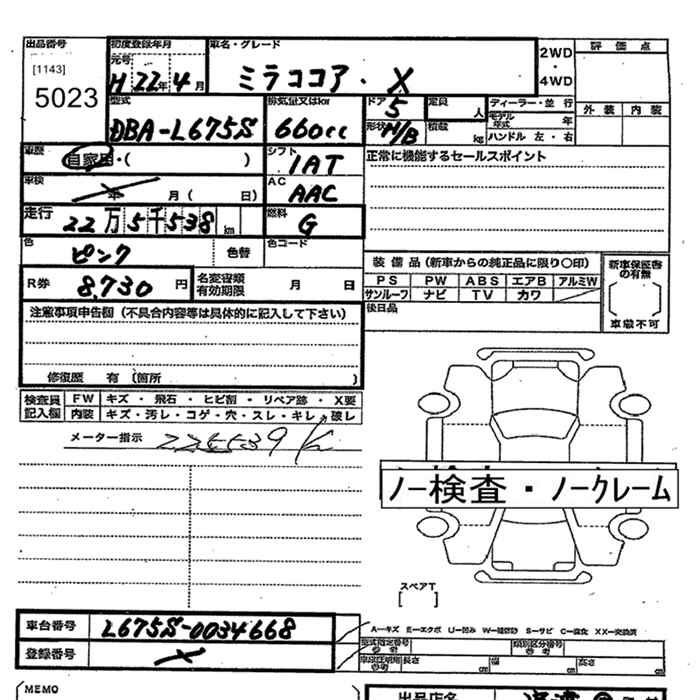 出品番号
[1143]
5023
初度登録年月
元号
H 22年 4月
車名・グレード
ミラココア・X
2WD
・
4WD
評価点
外装 内装
型式
DBA-L675S
排気量又はkw
660cc
ドア
5
形状
H/B
定員
人
積載
kg
ディーラー・並行
モデル年式 年
ハンドル 左・右
車歴
自家用・( )
シフト
IAT
正常に機能するセールスポイント
車検
年 月( 日)
AC
AAC
走行
22万5千538km
燃料
G
色
ピンク
色替
色コード
R券 8,730 円
名変書類
有効期限
月 日
装備品(新車からの純正品に限り〇印)
PS PW ABS エアB アルミW
サンルーフ ナビ TV カワ
新車保証書
の有無
車載不可
後日品
注意事項申告欄(不具合内容等は具体的に記入して下さい)
修復歴 有(箇所 )
検査員
記入欄
FW キズ・飛石・ヒビ割・リペア跡・X要
内装 キズ・汚レ・コゲ・穴・スレ・キレ・破レ
メーター指示 225539K
ノー検査・ノークレーム
スペアT
[ ]
車台番号 L675S-0034668
登録番号
A－キズ E－エクボ U－凹み S－サビ C－腐食 XX－交換済
型式指定番号
参考
類別区分番号
参考
長さ cm 幅 cm 高さ cm
MEMO
出品店名